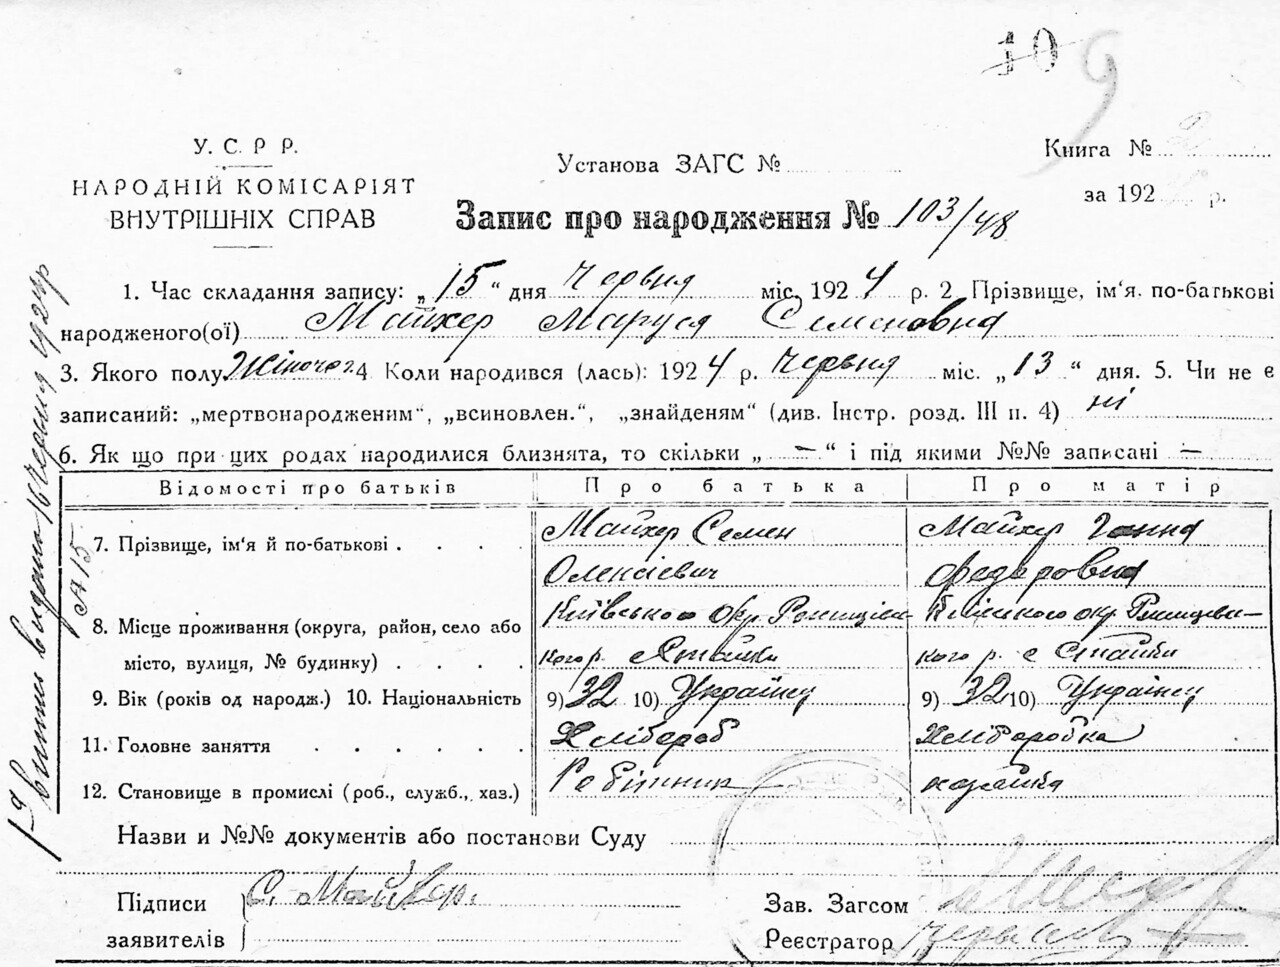 10 9
У. С. Р Р.
НАРОДНІЙ КОМІСАРІЯТ
ВНУТРІШНІХ СПРАВ
Установа ЗАГС №
Книга №
за 192 р.
Запис про народження № 103/48
1. Час складання запису: „15“ дня Червня міс. 1924 р. 2 Прізвище, ім'я, по-батькові
народженого(ої) Майхер Маруся Семеновна
3. Якого полу Жіночог. 4 Коли народився (лась): 1924 р. Червня міс. „13“ дня. 5. Чи не є
записаний: „мертвонародженим“, „всиновлен.“, „знайденям“ (див. Інстр. розд. III п. 4) ні
6. Як що при цих родах народилися близнята, то скільки „ — “ і під якими №№ записані —
Відомості про батьків Про батька Про матір
7. Прізвище, ім'я й по-батькові . . . . Майхер Семен Майхер Ганна
Олексієвич Федоровна
8. Місце проживання (округа, район, село або Київського окр. окр.
місто, вулиця, № будинку) . . . . кого р. с Стайки кого р. с Стайки
9. Вік (років од народж.) 10. Національність 9) 32 10) Українец 9) 32 10) Українец
11. Головне заняття . . . . . . Хлібороб Хліборобка
12. Становище в промислі (роб., служб., хаз.) Робітник хазяйка
Назви и №№ документів або постанови Суду
Підписи С. Майхер.
заявителів
Зав. Загсом
Реєстратор